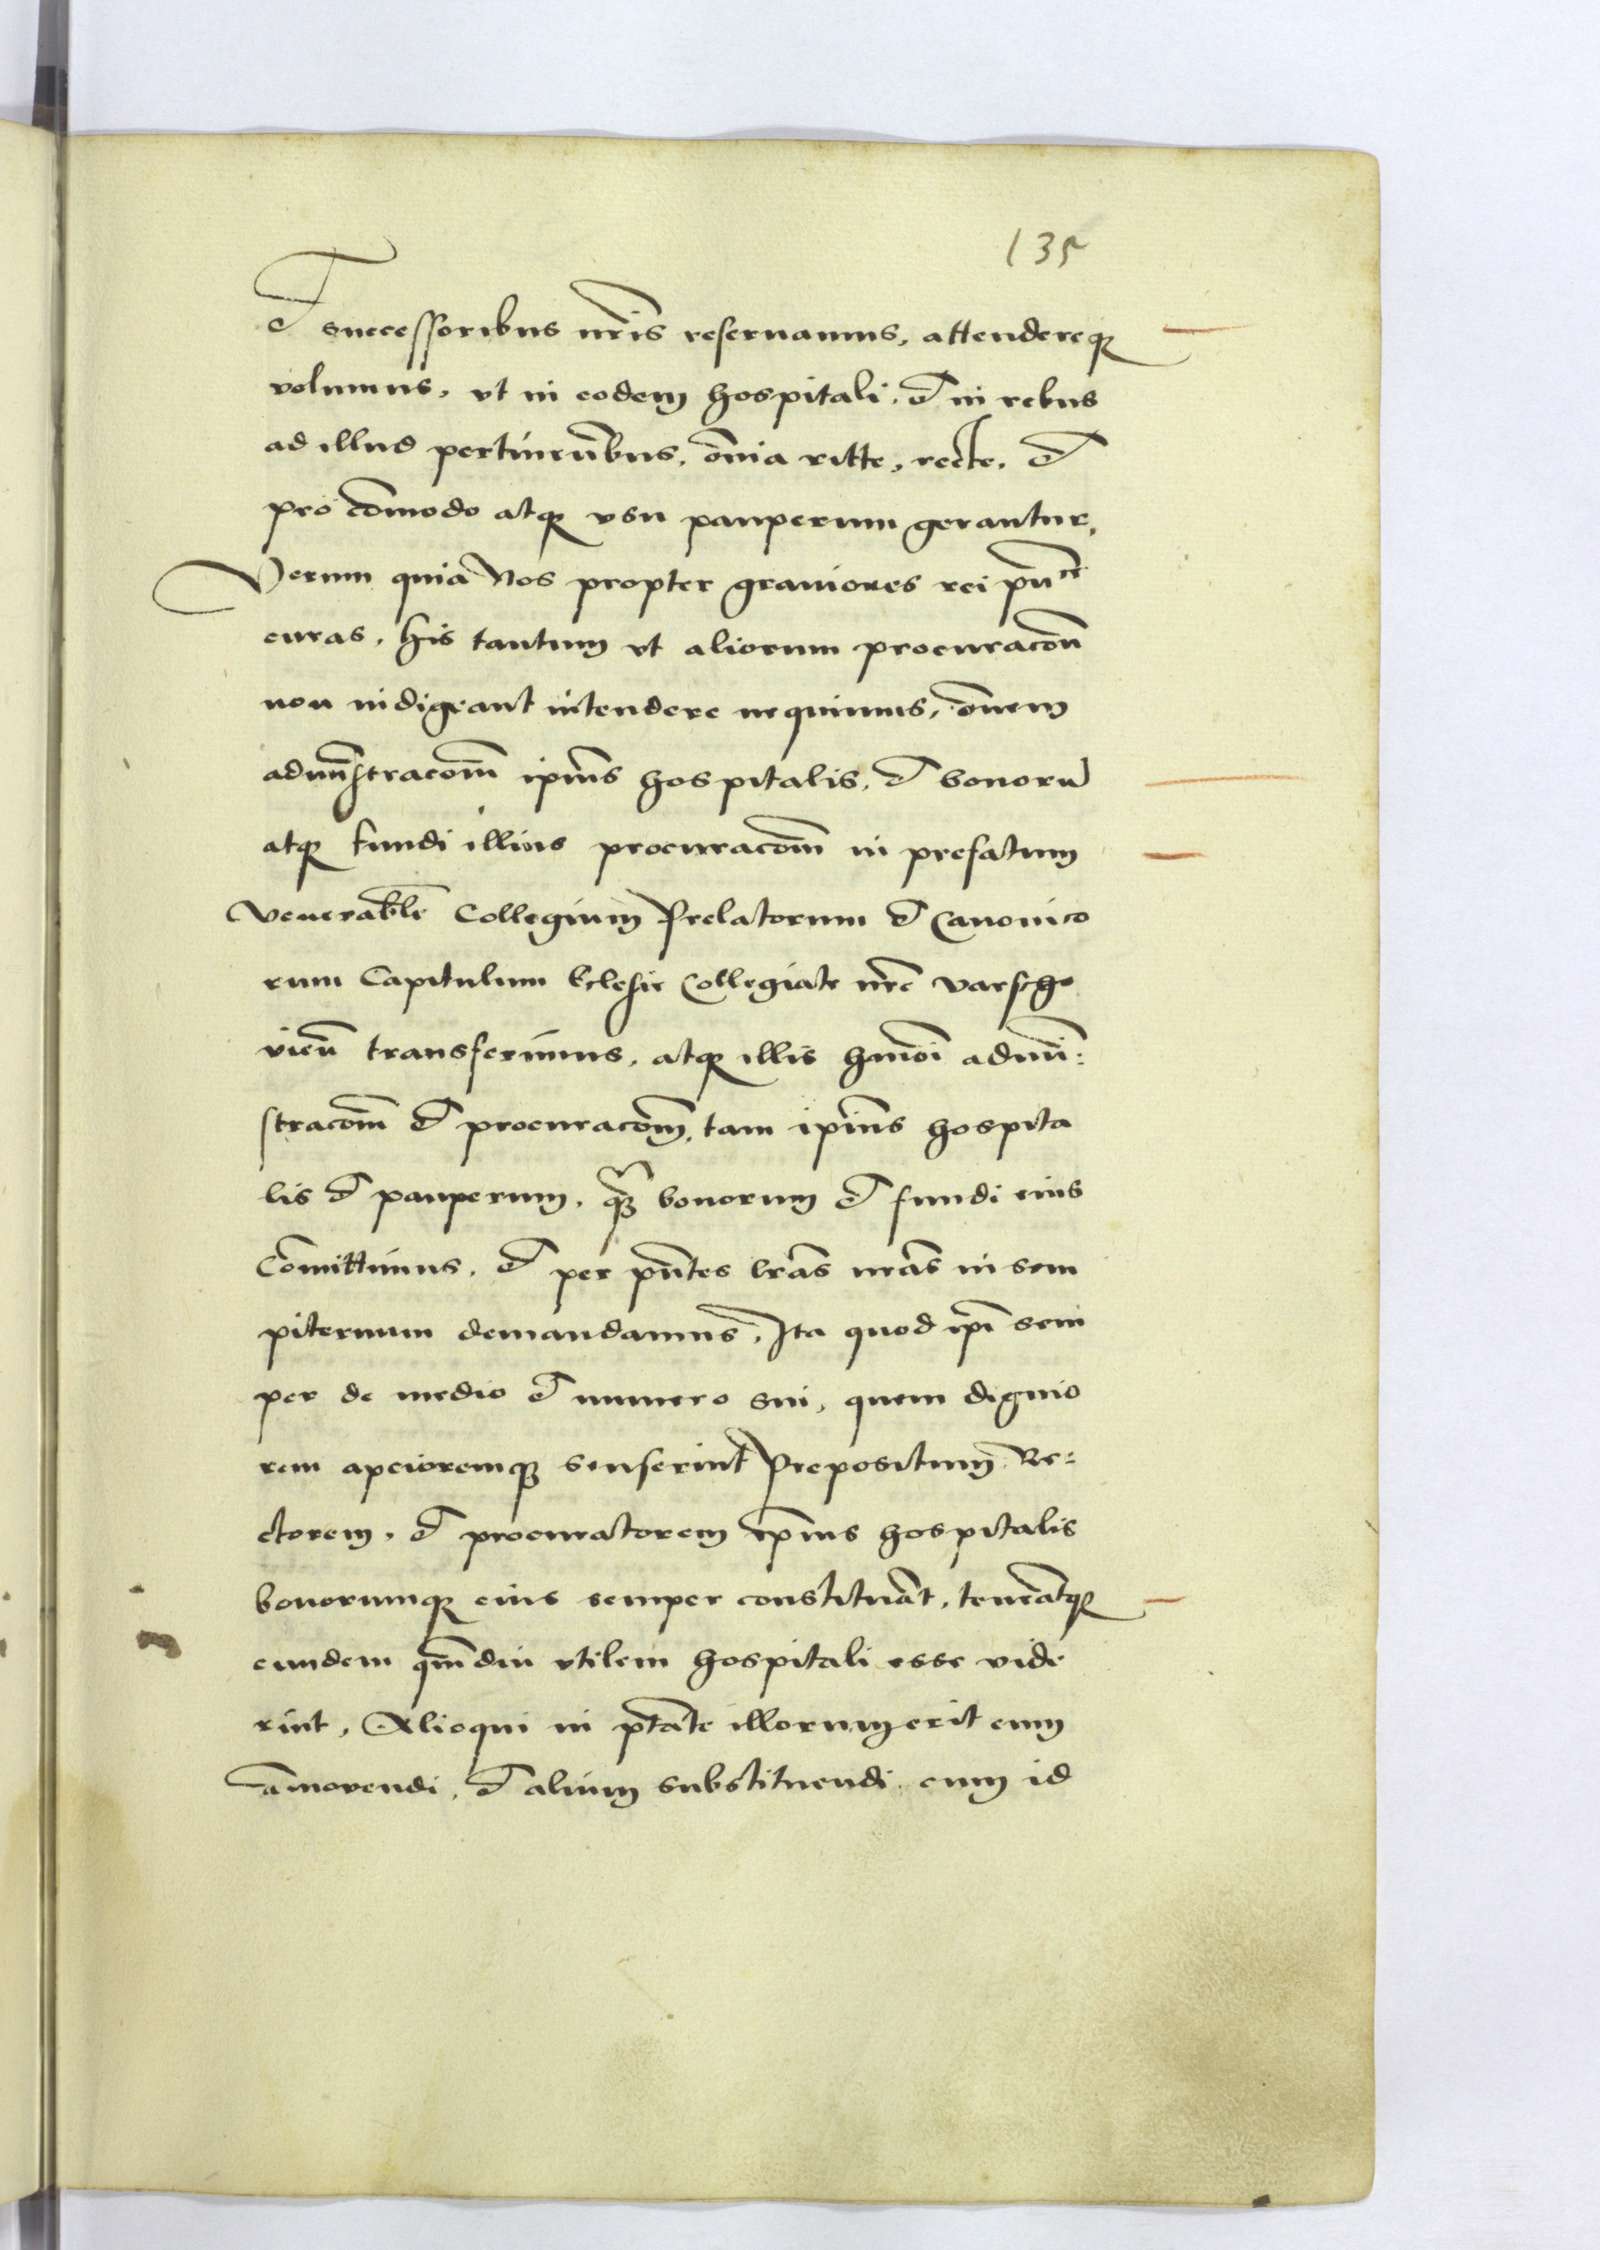 135
et successoribus nris reseruamus, attendereq
volumus, vt in eodem hospitali, et in rebus
ad illud pertinentibus, omnia ritte, recte, et
pro comodo atq vsu pauperum gerantur,
Verum quia Nos propter grauiores rei pu^ce
curas, his tantum vt aliorum procuracon
non indigeant intendere nequimus, omnem
admnstracom ipius hospitalis, et bonoru
atq fundi illius procuracom in prefatum
venerable Collegium Prelatorum et Canonico
rum Capitulum Eclesie Collegiate nre varscho
vien transferimus, atq illis hmoi admi:
stracom et procuracom, tam ipius hospita
lis et pauperum, q bonorum et fundi eius
Comittimus, et per pntes lras nras in sem
piternum demandamus, Ita quod ipi sem
per de medio et numero sui, quem dignio
rem apcioremq senserint Prepositum Re:
ctorem, et procuratorem ipius hospitalis
bonorumq eius semper constituat, teneatq
eundem qmdiu vtilem hospitali esse vide
rint, Alioqui in ptate illorum erit eum
amouendi, et alium substituendi cum id